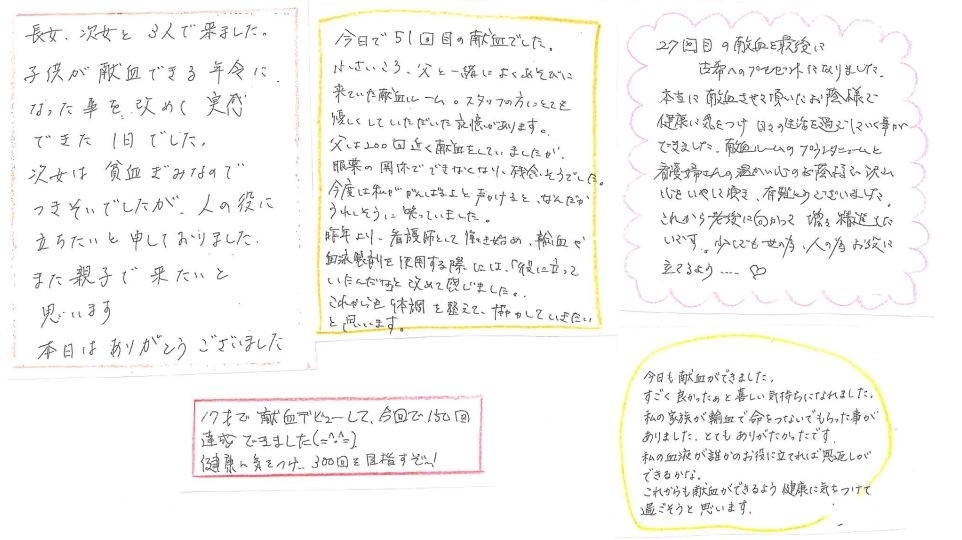 長女、次女と3人で来ました。
子供が献血できる年令に
なった事を改めて実感
できた1日でした。
次女は貧血ぎみなので
つきそいでしたが、人の役に
立ちたいと申しておりました。
また親子で来たいと
思います
本日はありがとうございました
今日で51回目の献血でした。
小さいころ、父と一緒によくあそびに
来ていた献血ルーム。スタッフの方にとても
優しくしていただいた記憶があります。
父は200回近く献血をしていましたが、
服薬の関係でできなくなり、残念そうでした。
今度は私ががんばるよと声かけると、なんだか
うれしそうに笑っていました。
昨年より、看護師として働き始め、輸血や
血液製剤を使用する際には、「役に立って
いたんだな」と改めて感じました。
これからも体調を整えて、活かしていきたい
と思います。
27回目の献血を最後に
古希へのプレゼントになりました。
本当に献血させて頂いたお蔭様で
健康に気をつけ日々の生活を過ごしていく事が
できました。献血ルームの
看護婦さんの温かい心のお蔭様で沢山
心をいやして頂き、有難とうございました。
これから老後に向かって増々精進した
いです。少しでも世の為、人の為お役に
立てるよう…..♡
17才で献血デビューして、今回で150回
達成できました(=^.^=)
健康に気をつけ、300回を目指すぞ~!
今日も献血ができました。
すごく良かったぁと喜しい気持ちになれました。
私の家族が輸血で命をつないでもらった事が
ありました。とてもありがたかったです。
私の血液が誰かのお役に立てれば恩返しが
できるかな。
これからも献血ができるよう健康に気をつけて
過ごそうと思います。